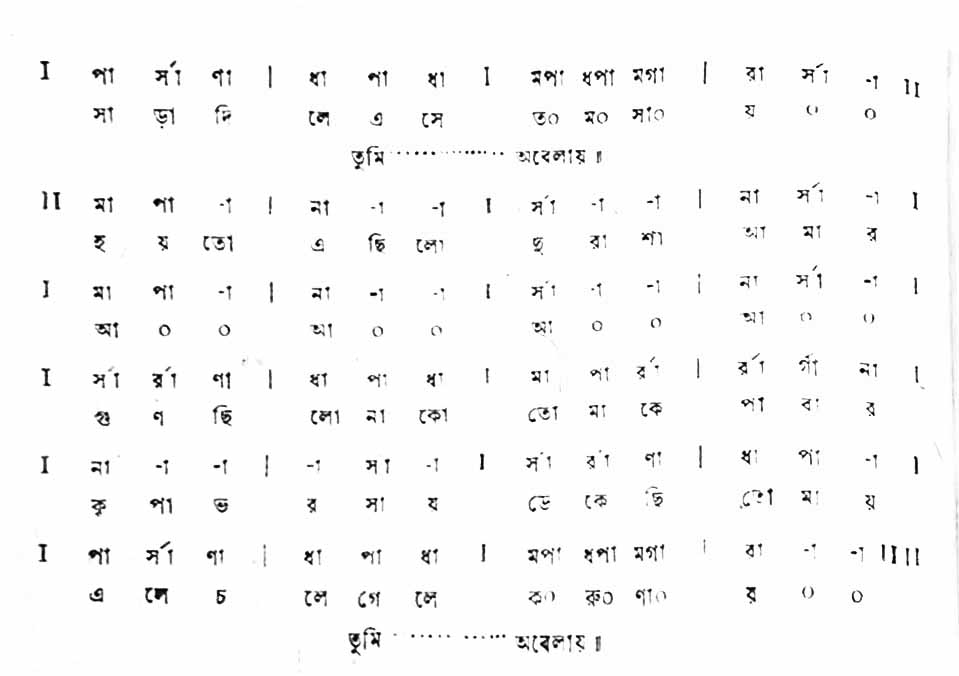 I পা র্সা ণা | ধা পা ধা I মপা ধপা মগা | রা র্সা -া II
সা ড়া দি লে এ সে ত০ ম০ সা০ য় ০ ০
তুমি ............... অবেলায় ॥
II মা পা -া | না -া -া I র্সা -া -া | না র্সা -া I
হ য় তো এ ছি লো দু রা শা আ মা র
I মা পা -া | না -া -া I র্সা -া -া | না র্সা -া I
আ ০ ০ আ ০ ০ আ ০ ০ আ ০ ০
I র্সা র্রা ণা | ধা পা ধা I মা পা র্রা | র্রা র্গা না I
গু ণ ছি লো না কো তো মা কে পা বা র
I না -া -া | -া সা -া I র্সা র্রা ণা | ধা পা -া I
কৃ পা ভ র সা য ডে কে ছি তো মা য়
I পা র্সা ণা | ধা পা ধা I মপা ধপা মগা | রা -া -া II II
এ লে চ লে গে লে ক০ রু০ ণা০ র ০ ০
তুমি ............... অবেলায় ॥